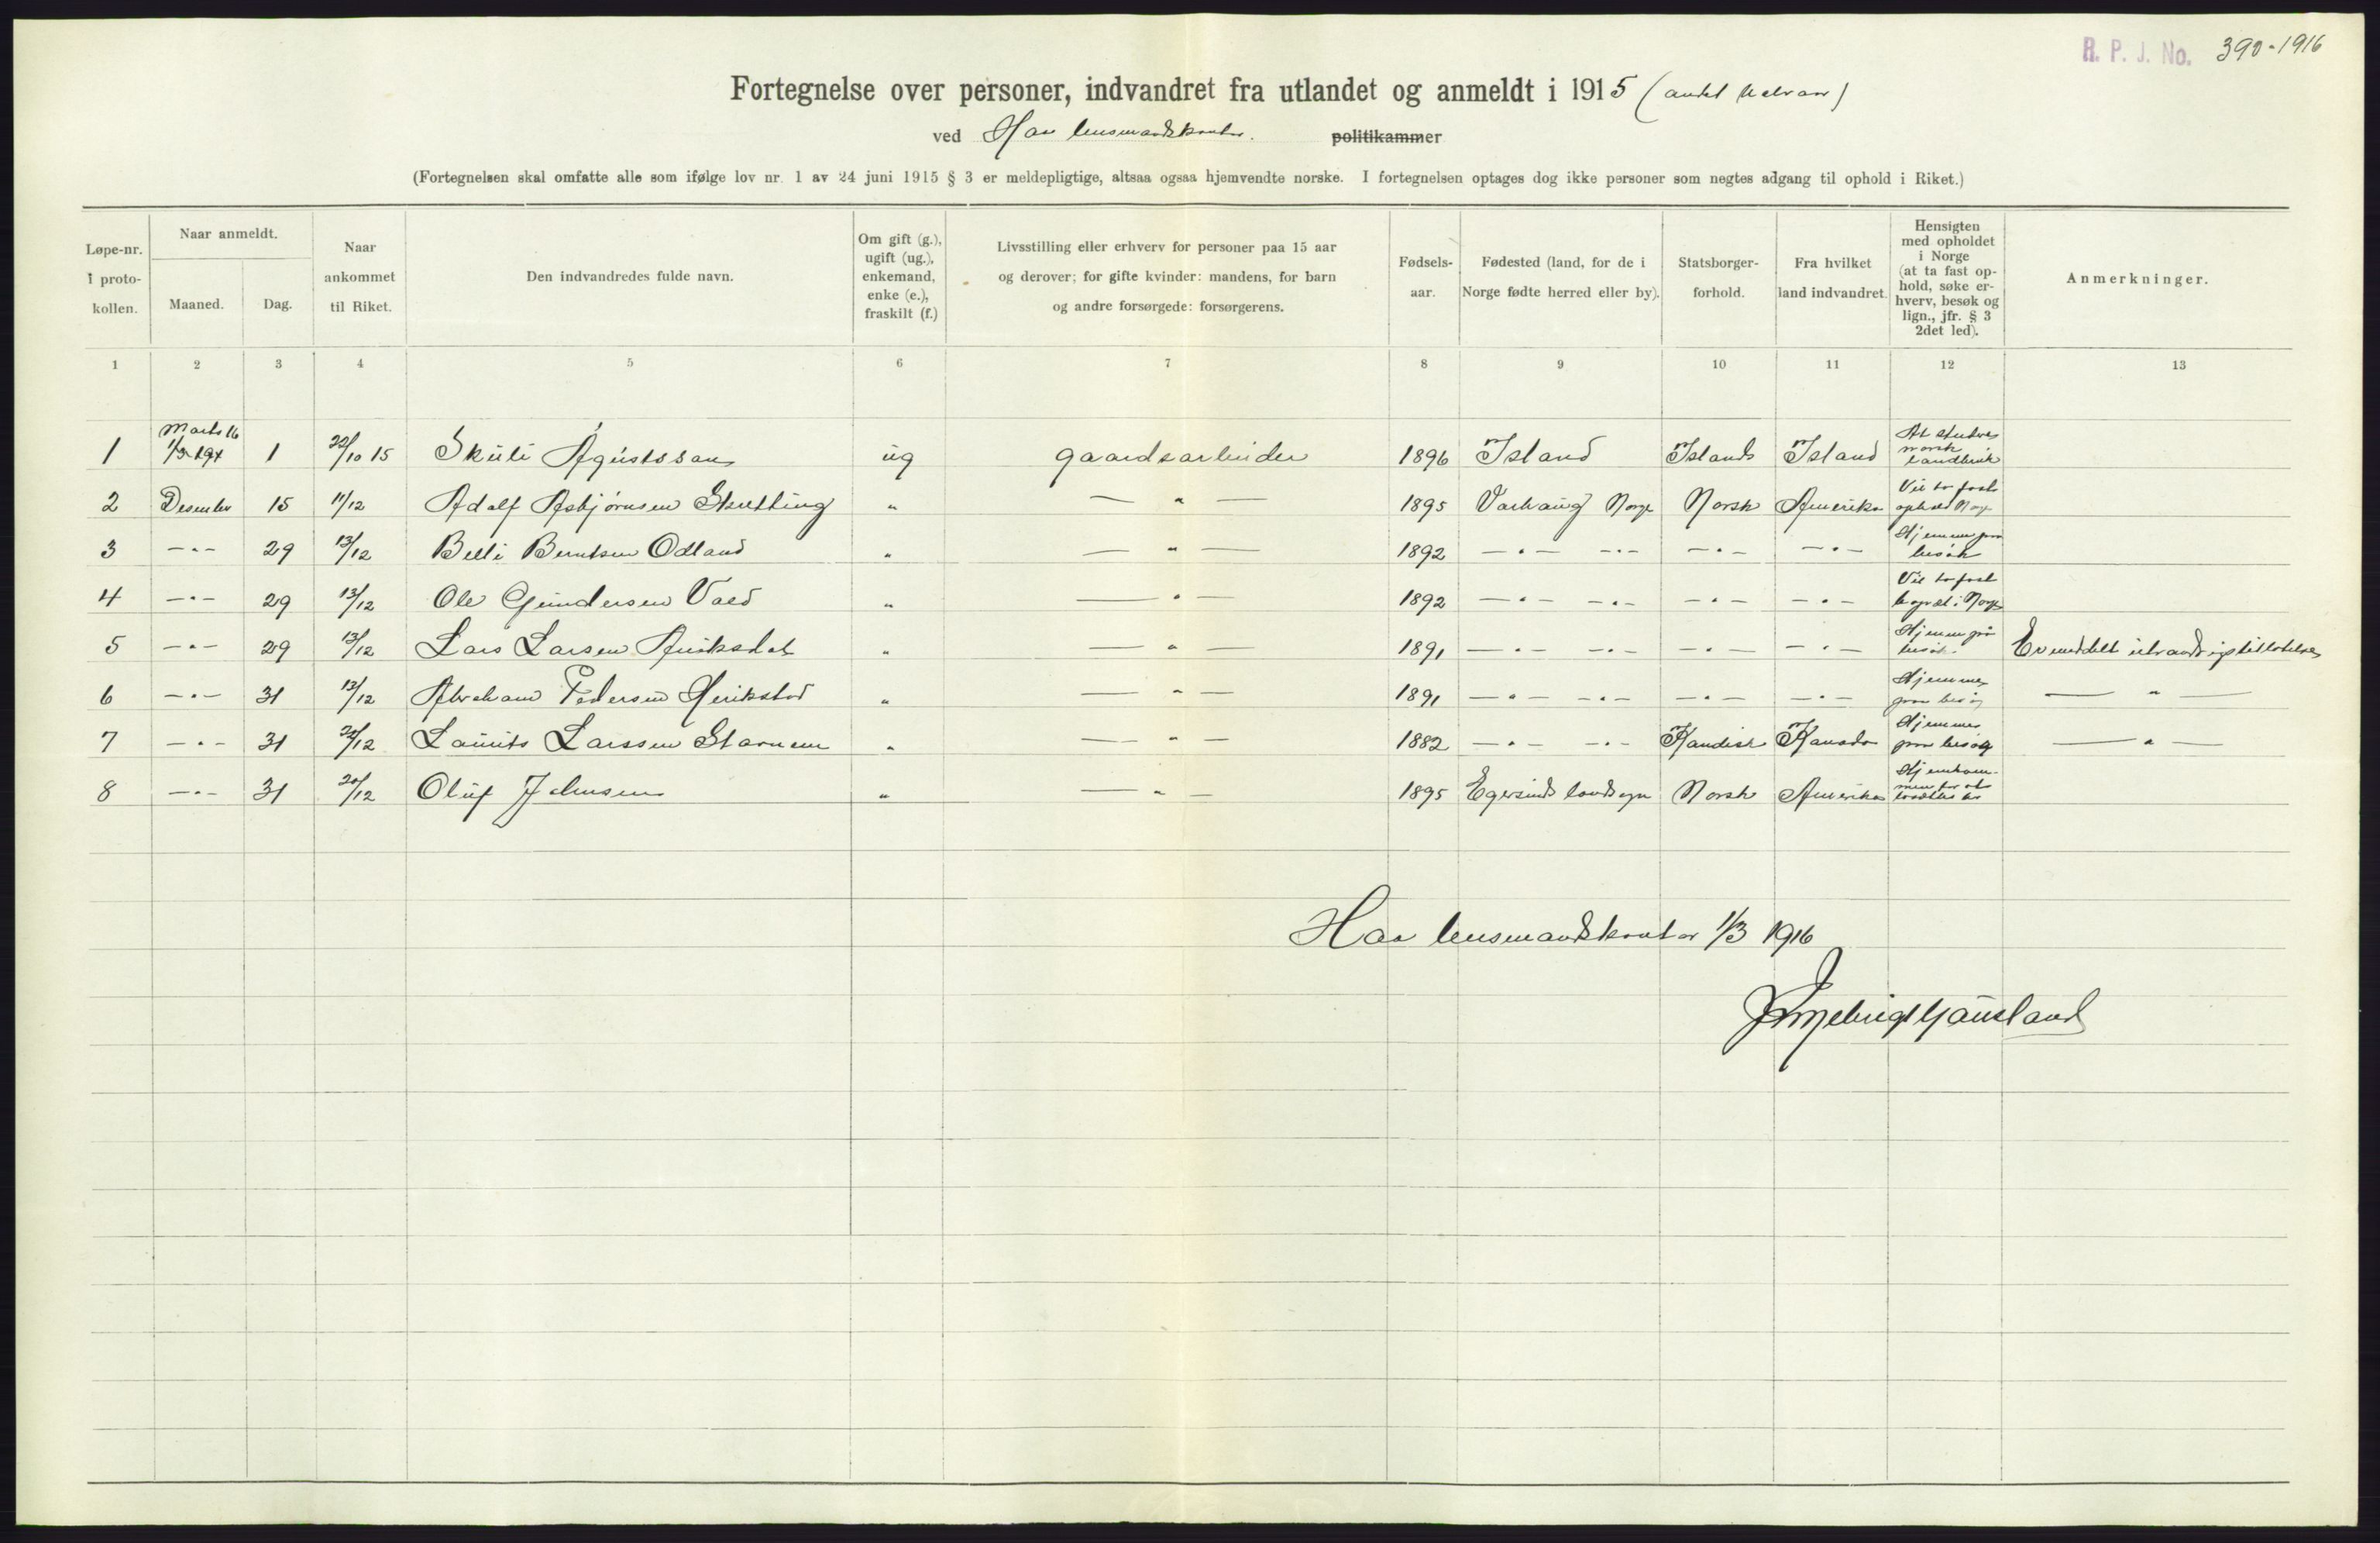 R. P. J. No. 390-1916
Fortegnelse over personer, indvandret fra utlandet og anmeldt i 1915 (andet halvaar)
ved Haa lensmandskontor. politikammer
(Fortegnelsen skal omfatte alle som ifølge lov nr. 1 av 24 juni 1915 § 3 er meldepligtige, altsaa ogsaa hjemvendte norske. I fortegnelsen optages dog ikke personer som negtes adgang til ophold i Riket.)
Løpe-nr. i proto- kollen.
Naar anmeldt.
Maaned. Dag.
Naar ankommet til Riket.
Den indvandredes fulde navn.
Om gift (g.), ugift (ug.), enkemand, enke (e.), fraskilt (f.)
Livsstilling eller erhverv for personer paa 15 aar og derover; for gifte kvinder: mandens, for barn og andre forsørgede: forsørgerens.
Fødsels- aar.
Fødested (land, for de i Norge fødte herred eller by).
Statsborger- forhold.
Fra hvilket land indvandret.
Hensigten med opholdet i Norge (at ta fast op- hold, søke er- hverv, besøk og lign., jfr. § 3 2det led).
Anmerkninger.
1 2 3 4 5 6 7 8 9 10 11 12 13
1 Marts 16 1 22/10 15 Skúli Ágústsson ug gaardsarbeider 1896 Island Islands Island At studere norsk landbruk
2 Desember 15 11/12 Adolf Asbjørnsen Skretting " — " — 1895 Varhaug Norge Norsk Amerika Vil ta fast ophold Norge
3 — " — 29 13/12 Berntsen Odland " — " — 1892 — " — — " — — " — — " — Hjemme paa besøk
4 — " — 29 13/12 Ole Gundersen " — " — 1892 — " — — " — — " — — " — Vil ta fast i Norge
5 — " — 29 13/12 Lars Larsen " — " — 1891 — " — — " — — " — — " — Hjemme på besøk. Er meddelt utvandringstillatelse
6 — " — 31 13/12 Abraham Pedersen Herikstad " — " — 1891 — " — — " — — " — — " — Hjemme paa besøg — " —
7 — " — 31 20/12 Laurits Larssen Stavnem " — " — 1882 — " — — " — Kandisk Kanada Hjemme paa besøg — " —
8 — " — 31 20/12 Oluf Johnsen " — " — 1895 Egersund landsogn Norsk Amerika
Haa lensmandskontor 1/3 1916